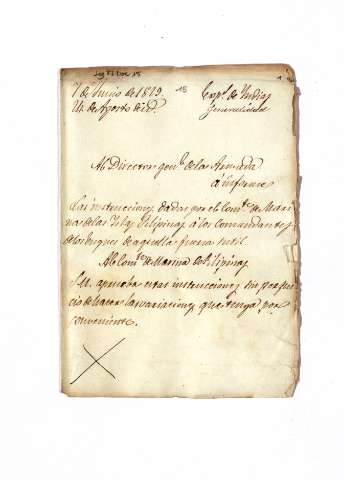 7 de Junio de 1819. 18 Exp.^s de Indias
24 de Agosto de id. Generalidad
Al Director gen.^l de la Armada
á informe
Las instrucciones dadas por el Com.^te de Mari
na de las Islas Filipinas á los Comandantes
de los buques de aquella fuerza sutil.
Al Com.^te de Marina de Filipinas
S.M. aprueba estas instrucciones sin perjui
cio de hacer las variaciones que tenga por
conveniente.